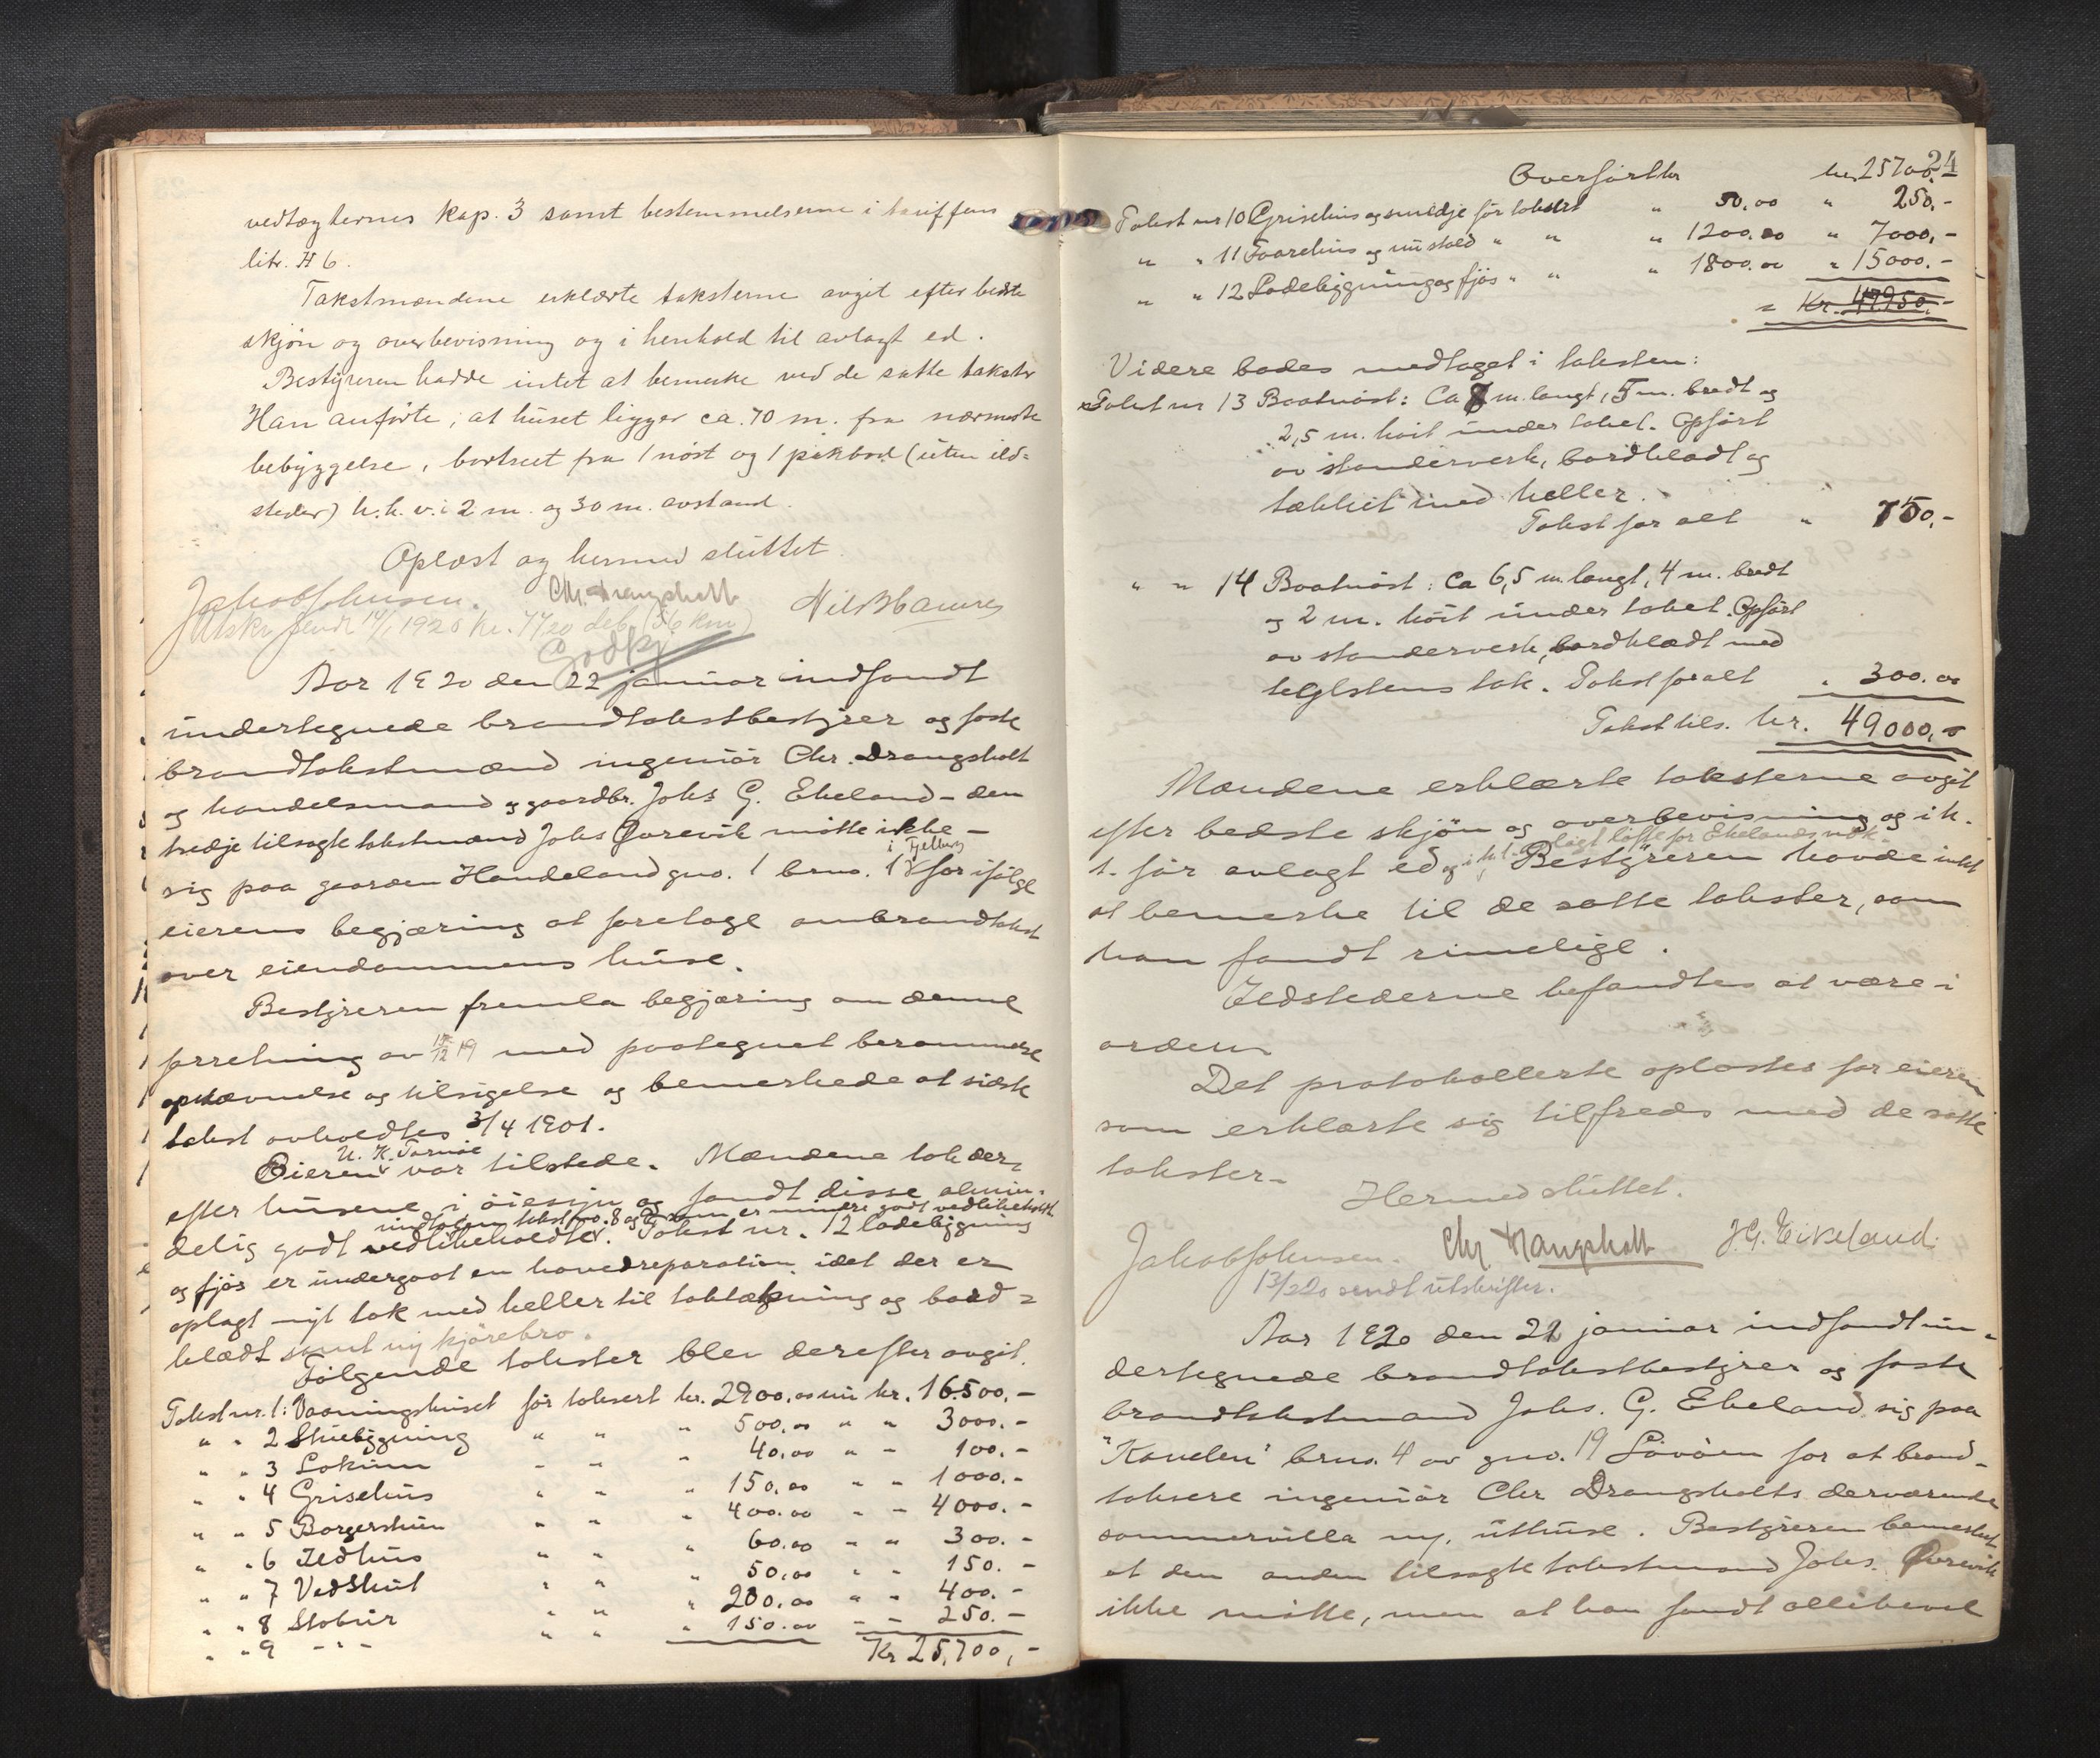 vedtægternes kap. 3 samt bestemmelserne i tariffens
litr. H 6.
Takstmændene erklærte taksterne avgit efter bedste
skjøn og overbevisning og i henhold til avlagt ed.
Bestyreren hadde intet at bemerke ved de satte takster
Han anførte, at huset ligger ca. 70 m. fra nærmeste
bebyggelse, bortseet fra 1 nøst og 1 (uten ild-
steder) h.h.v. i 2 m. og 30 m. avstand.
Oplæst og hermed sluttet.
Jakob Johnsen. Chr. Drangsholt
Utskr. sendt 1920 kr.
Godkj.
Aar 1920 den 22 januar indfandt
undertegnede brandtakstbestyrer og faste
brandtakstmænd ingeniör Chr. Drangsholt
og handelsmand og gaardbr. Johs G. Ekeland – den
tredje tilsagte takstmand Johs Qvrevik mötte ikke –
sig paa gaarden Handeland gno. 1 brno. 1 i Fjelberg for ifölge
eierens begjæring at foretage ombrandtakst
over eiendommens huse.
Bestyreren fremla begjæring om denne
forretning av 12 19 med paategnet berammelse
opnævnelse og tilsigelse og bemerkede at sidste
takst avholdtes 3/4 1901.
Eieren var tilstede. Mændene tok der-
efter husene i öiesyn og fandt disse almin-
undtagen takst no. 8 og 9 som er mindre godt vedlikeholdt
delig godt vedlikeholdte. Takst nr. 12 ladebygning
og fjös er undergaat en hovedreparation, idet der er
oplagt nyt tak med heller til taktækning og bord-
klædt samt ny kjörebro.
Fölgende takster blev derefter avgit.
Takst nr. 1: Vaaningshuset för taksert kr. 2900.00 nu kr. 16500,-
" " 2 Skuebygning " " " 500.00 " " 3000.-
" " 3 Lokum " " " 40.00 " " 100.-
" " 4 Grisehus " " " 150.00 " " 1000.-
" " 5 Borgerstuen " " " 400.00 " " 4000.-
" " 6 Ildhus " " " 60.00 " " 300.-
" " 7 Vedskut " " " 50.00 " " 150.-
" " 8 Stabur " " " 200.00 " " 400.-
" " 9 - " - " " " 150.00 " " 250.-
Kr 25,700,-
24
Overfört kr. kr. 25700.
Takst nr 10 Grisehus og smidje för taksert " 50.00 " 250.-
" " 11 Faarehus og " " " 1200.00 " 7000,-
" " 12 Ladebygning og fjös " " " 1800.00 " 15000.-
= Kr. 47950.-
Videre bades medtaget i taksten:
Takst nr 13 Baatnöst: Ca 8 m. langt, 5 m. bredt og
2,5 m. höit under taket. Opfört
av stenderverk, bordklædt og
tækket med heller.
Takst for alt " 750,-
" " 14 Baatnöst: Ca 6,5 m. langt, 4 m. bredt
og 2 m. höit under taket. Opfört
av stenderverk, bordklædt med
teglstens tak. Takst for alt " 300.00
Takst tils. kr. 49000,-
Mændene erklærte taksterne avgit
efter bedste skjön og overbevisning og i h.
t. för avlagt ed og i h.t. avlagt löfte for Ekelands vedk. Bestyreren havde intet
at bemerke til de satte takster, som
han fandt rimelige.
Ildstederne befandtes at være i
orden
Det protokollerte oplæstes for eieren
som erklærte sig tilfreds med de satte
takster.
Hermed sluttet.
Jakob Johnsen. Chr Drangsholt J. G. Eikeland.
13/2 20 sendt utskrifter.
Aar 1920 den 22 januar indfandt un-
dertegnede brandtakstbestyrer og faste
brandtakstmand Johs. G. Ekeland sig paa
"Kauelen" brno. 4 av gno. 19 for at brand-
taksere ingeniör Chr Drangsholts derværende
sommervilla ny, uthuse. Bestyreren bemerket
at den anden tilsagte takstmand Johs. Qvrevik
ikke mötte, men at han fandt allikevel